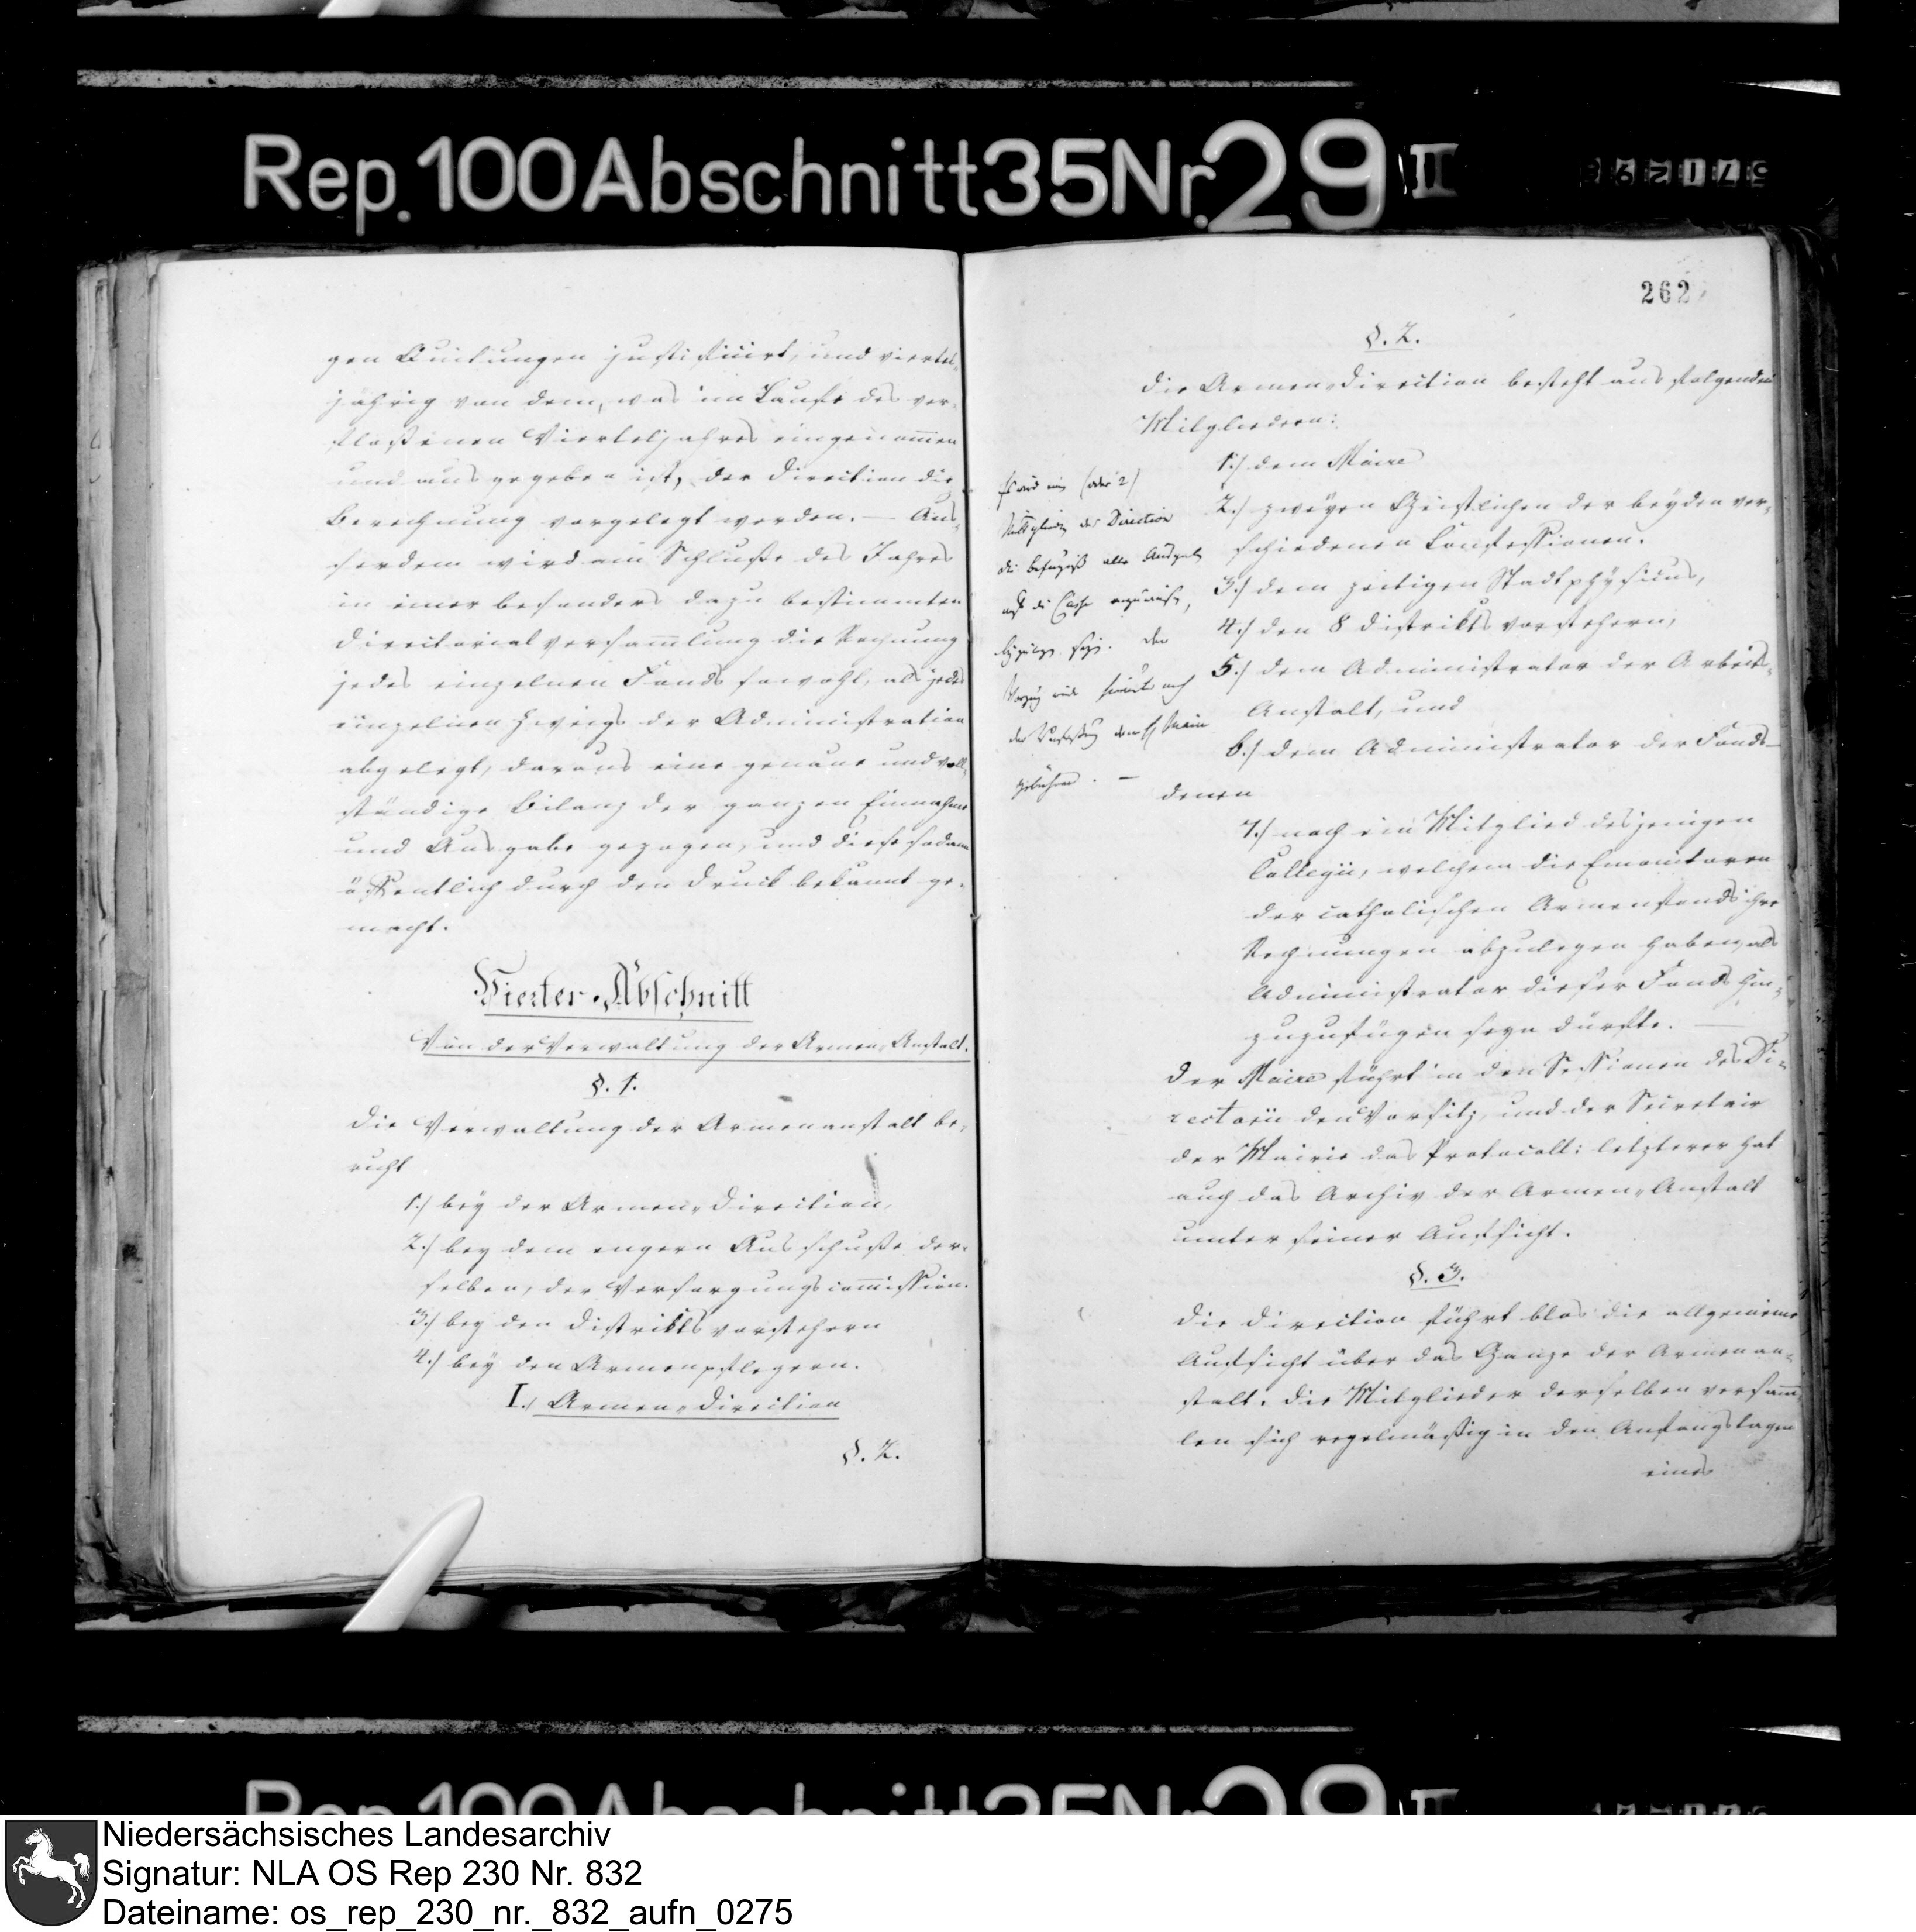 Rep. 100 Abschnitt 35 Nr. 29 II
gen Quitungen justificirt, und viertel-
jährig von dem, was im Laufe des ver-
floßenen Vierteljahres eingenom̄en
und ausgegeben ist, der Direction die
Berechnung vorgelegt werden. — Aus-
serdem wird am Schluße des Jahres
in einer besonders dazu bestimmten
Directorialversam̄lung die Rechnung
jedes einzelnen Fonds sowohl, als jedes
einzelnen Zweigs der Administration
abgelegt, daraus eine genaue und voll-
ständige Bilanz der ganzen Einnahme
und Ausgabe gezogen, und diese sodann
öffentlich durch den Druck bekannt ge-
macht.
Vierter Abschnitt
Von der Verwaltung der Armen-Anstalt.
§. 1.
Die Verwaltung der Armenanstalt be-
ruht
1.) bey der Armen-Direction,
2.) bey dem engern Ausschuße der-
selben, der Versorgungscom̄ission.
3.) bey den Distriktsvorstehern
4.) bey den Armenpflegern.
I., Armen-Direction
§. 2.
262
§. 2.
Die Armen-Direction besteht aus folgenden
Mitgliedern:
1.) dem Maire
2.) zweyen Geistlichen der beyden ver-
schiedenen Confessionen.
3.) dem zeitigen Stadtphysicus,
4.) den 8 Distriktsvorstehern,
5.) dem Administrator der Arbeits-
Anstalt, und
6.) dem Administrator der Fonds —
denen
7.) noch ein Mitglied desjenigen
Collegii, welchem die Emonitoren
der catholischen Armenfonds ihre
Rechnungen abzulegen haben, als
Administrator dieser Fonds hin-
zuzufügen seyn dürfte. —
Der Maire führt in den Sessionen des Di-
rectorii den Vorsitz, und der Secretair
der Mairie das Protocoll: letzterer hat
auch das Archiv der Armen-Anstalt
unter seiner Aufsicht.
§. 3.
Die Direction führt blos die allgemeine
Aufsicht über das Ganze der Armenan-
stalt. Die Mitglieder derselben versam̄-
len sich regelmäßig in den Anfangstagen
eines
Es wird ein (oder 2)
Mitglieder der Direction
die Befugniß alle Ausgab
auf die Casse anzuweisen,
der
Vorzug wird hierunter nach
der Verfaßung dem H. Maire
gebühren. —
Niedersächsisches Landesarchiv
Signatur: NLA OS Rep 230 Nr. 832
Dateiname: os_rep_230_nr._832_aufn_0275